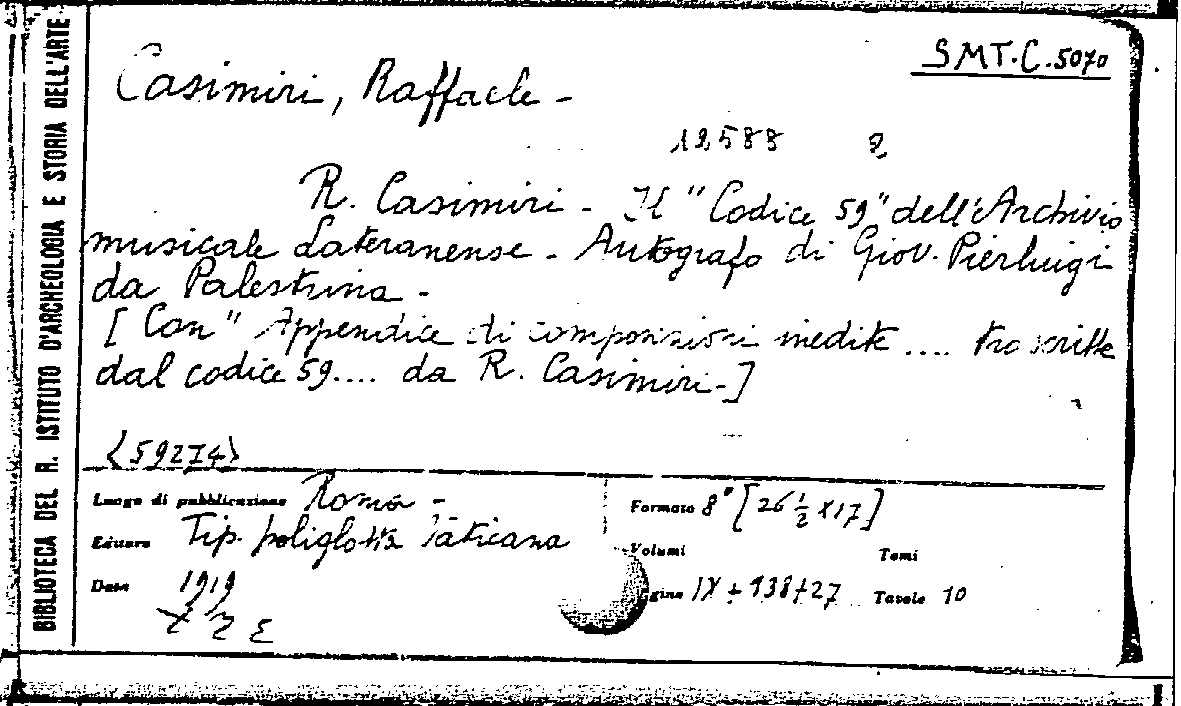 BIBLIOTECA DEL R. ISTITUTO D'ARCHEOLOGIA E STORIA DELL'ARTE
S.M.T.C. 5070
Casimiri, Raffaele -
12588 2
R. Casimiri - Il "Codice 59" dell'Archivio
musicale Lateranense - Autografo di Giov. Pierluigi
da Palestrina -
[Con" Appendice di composizioni inedite .... trascritte
dal codice 59.... da R. Casimiri -]
<59274>
Luogo di pubblicazione Roma -
Formato 8° [26 1/2 x 17]
Editore Tip. poliglotta Vaticana
Volumi Tomi
Data 1919
Pagine IX + 138+27 Tavole 10